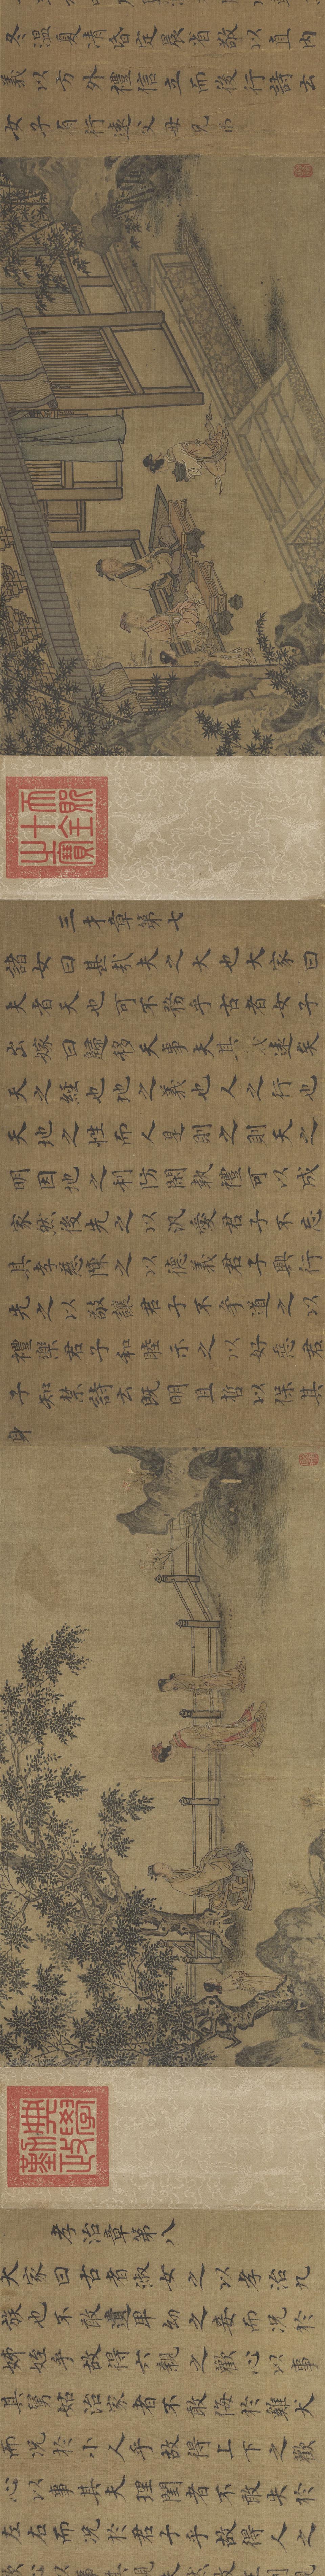 冬溫夏凊昏定晨省敬以直內
義以方外禮信立而後行詩云
女子有行遠父母兄弟
三才章第七
諸女曰甚哉夫之大也大家曰
夫者天也可不務乎古者女子
出嫁曰歸移天事夫其遠矣
天之經也地之義也人之行也
天地之性而人是則之則天之
明因地之利防閑執禮可以成
家然後先之以汎愛君子不忘
其孝慈陳之以德義君子興行
先之以敬讓君子不爭道之以
禮樂君子和睦示之以好惡君
子知禁詩云既明且哲以保其
身
孝治章第八
大家曰古者淑女之以孝治九
族也不敢遺卑幼之妾而況於
娣姪乎故得六親之歡心以事
其舅姑治家者不敢侮於雞犬
而況於小人乎故得上下之歡
心以事其夫理閨者不敢失於
左右而況於君子乎故得人之